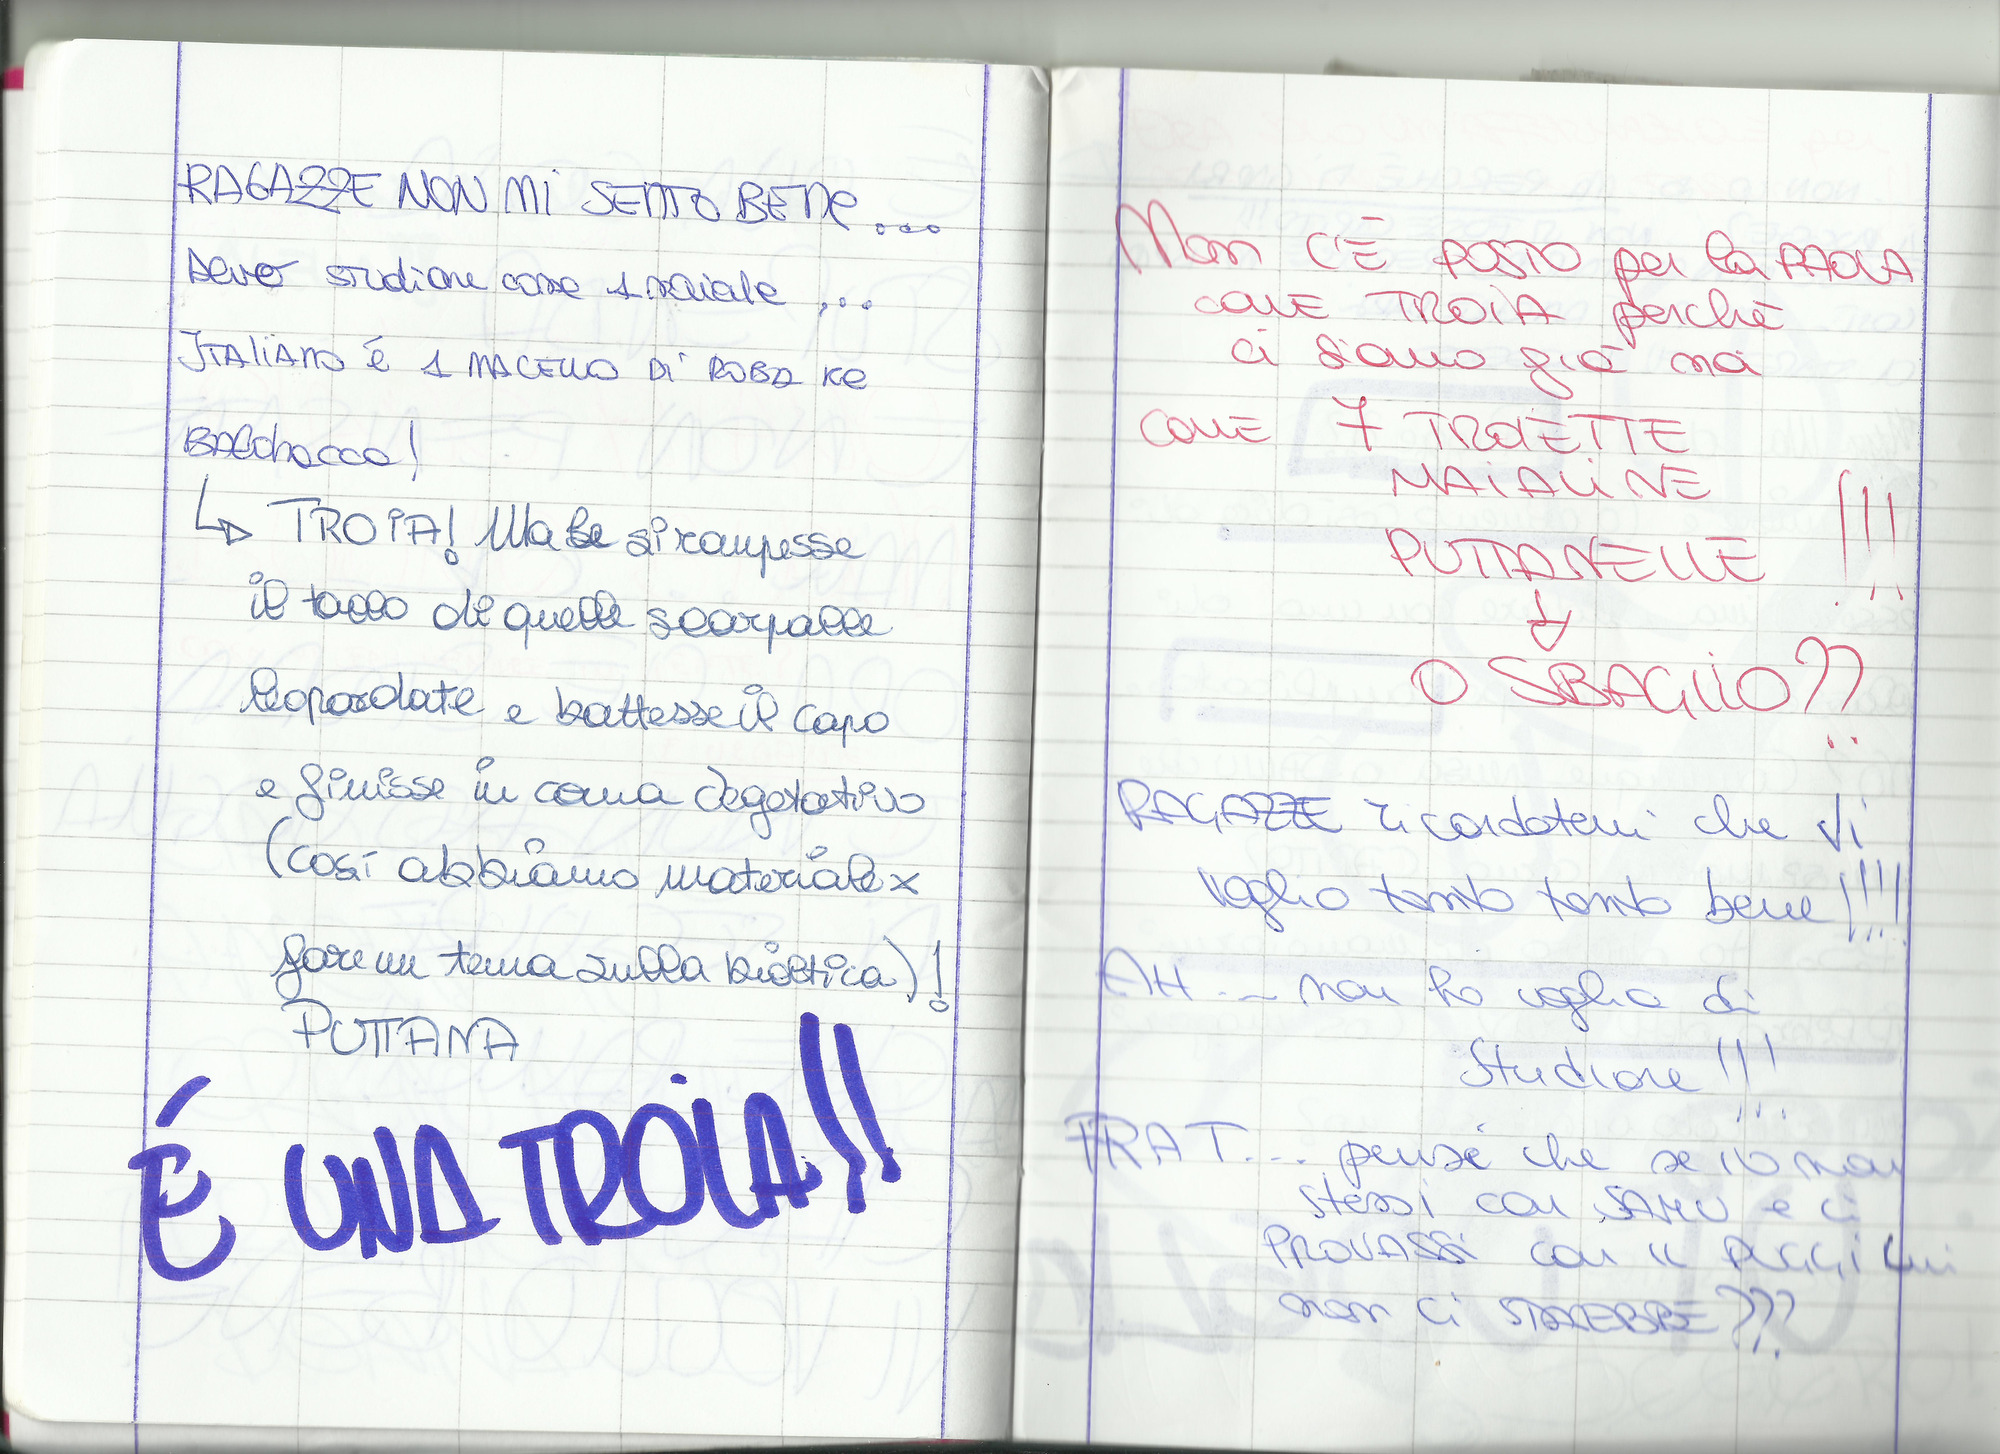 RAGAZZE NON Mi SENTO BENe...
Devo studiare come 1 maiale ,...
ITAliANO é 1 MACELLO Di ROBA Ke
BAldracca!
↳ TROiA! Ma se si rompesse
il tacco di quelle scarpacce
leopardate e battesse il capo
e finisse in coma vegetativo
(così abbiamo materiale x
fare un tema sulla bioetica)!
PUTTANA
É UNA TROiA!!
Non C'È POSTO per la PAOLA
COME TROiA perchè
ci siamo già noi
COME 7 TROiETTE
MAiALiNE
PUTTANELLE !!!
O SBAGLIO??
RAGAZZE ricordatevi che Vi
voglio tanto tanto bene!!!!
AH... non ho voglia di
Studiare!!!
FRAT.... pensi che se io non
stessi con SAMU e ci
PROVASSi con il PUGGi lui
non Ci STAREBBE???